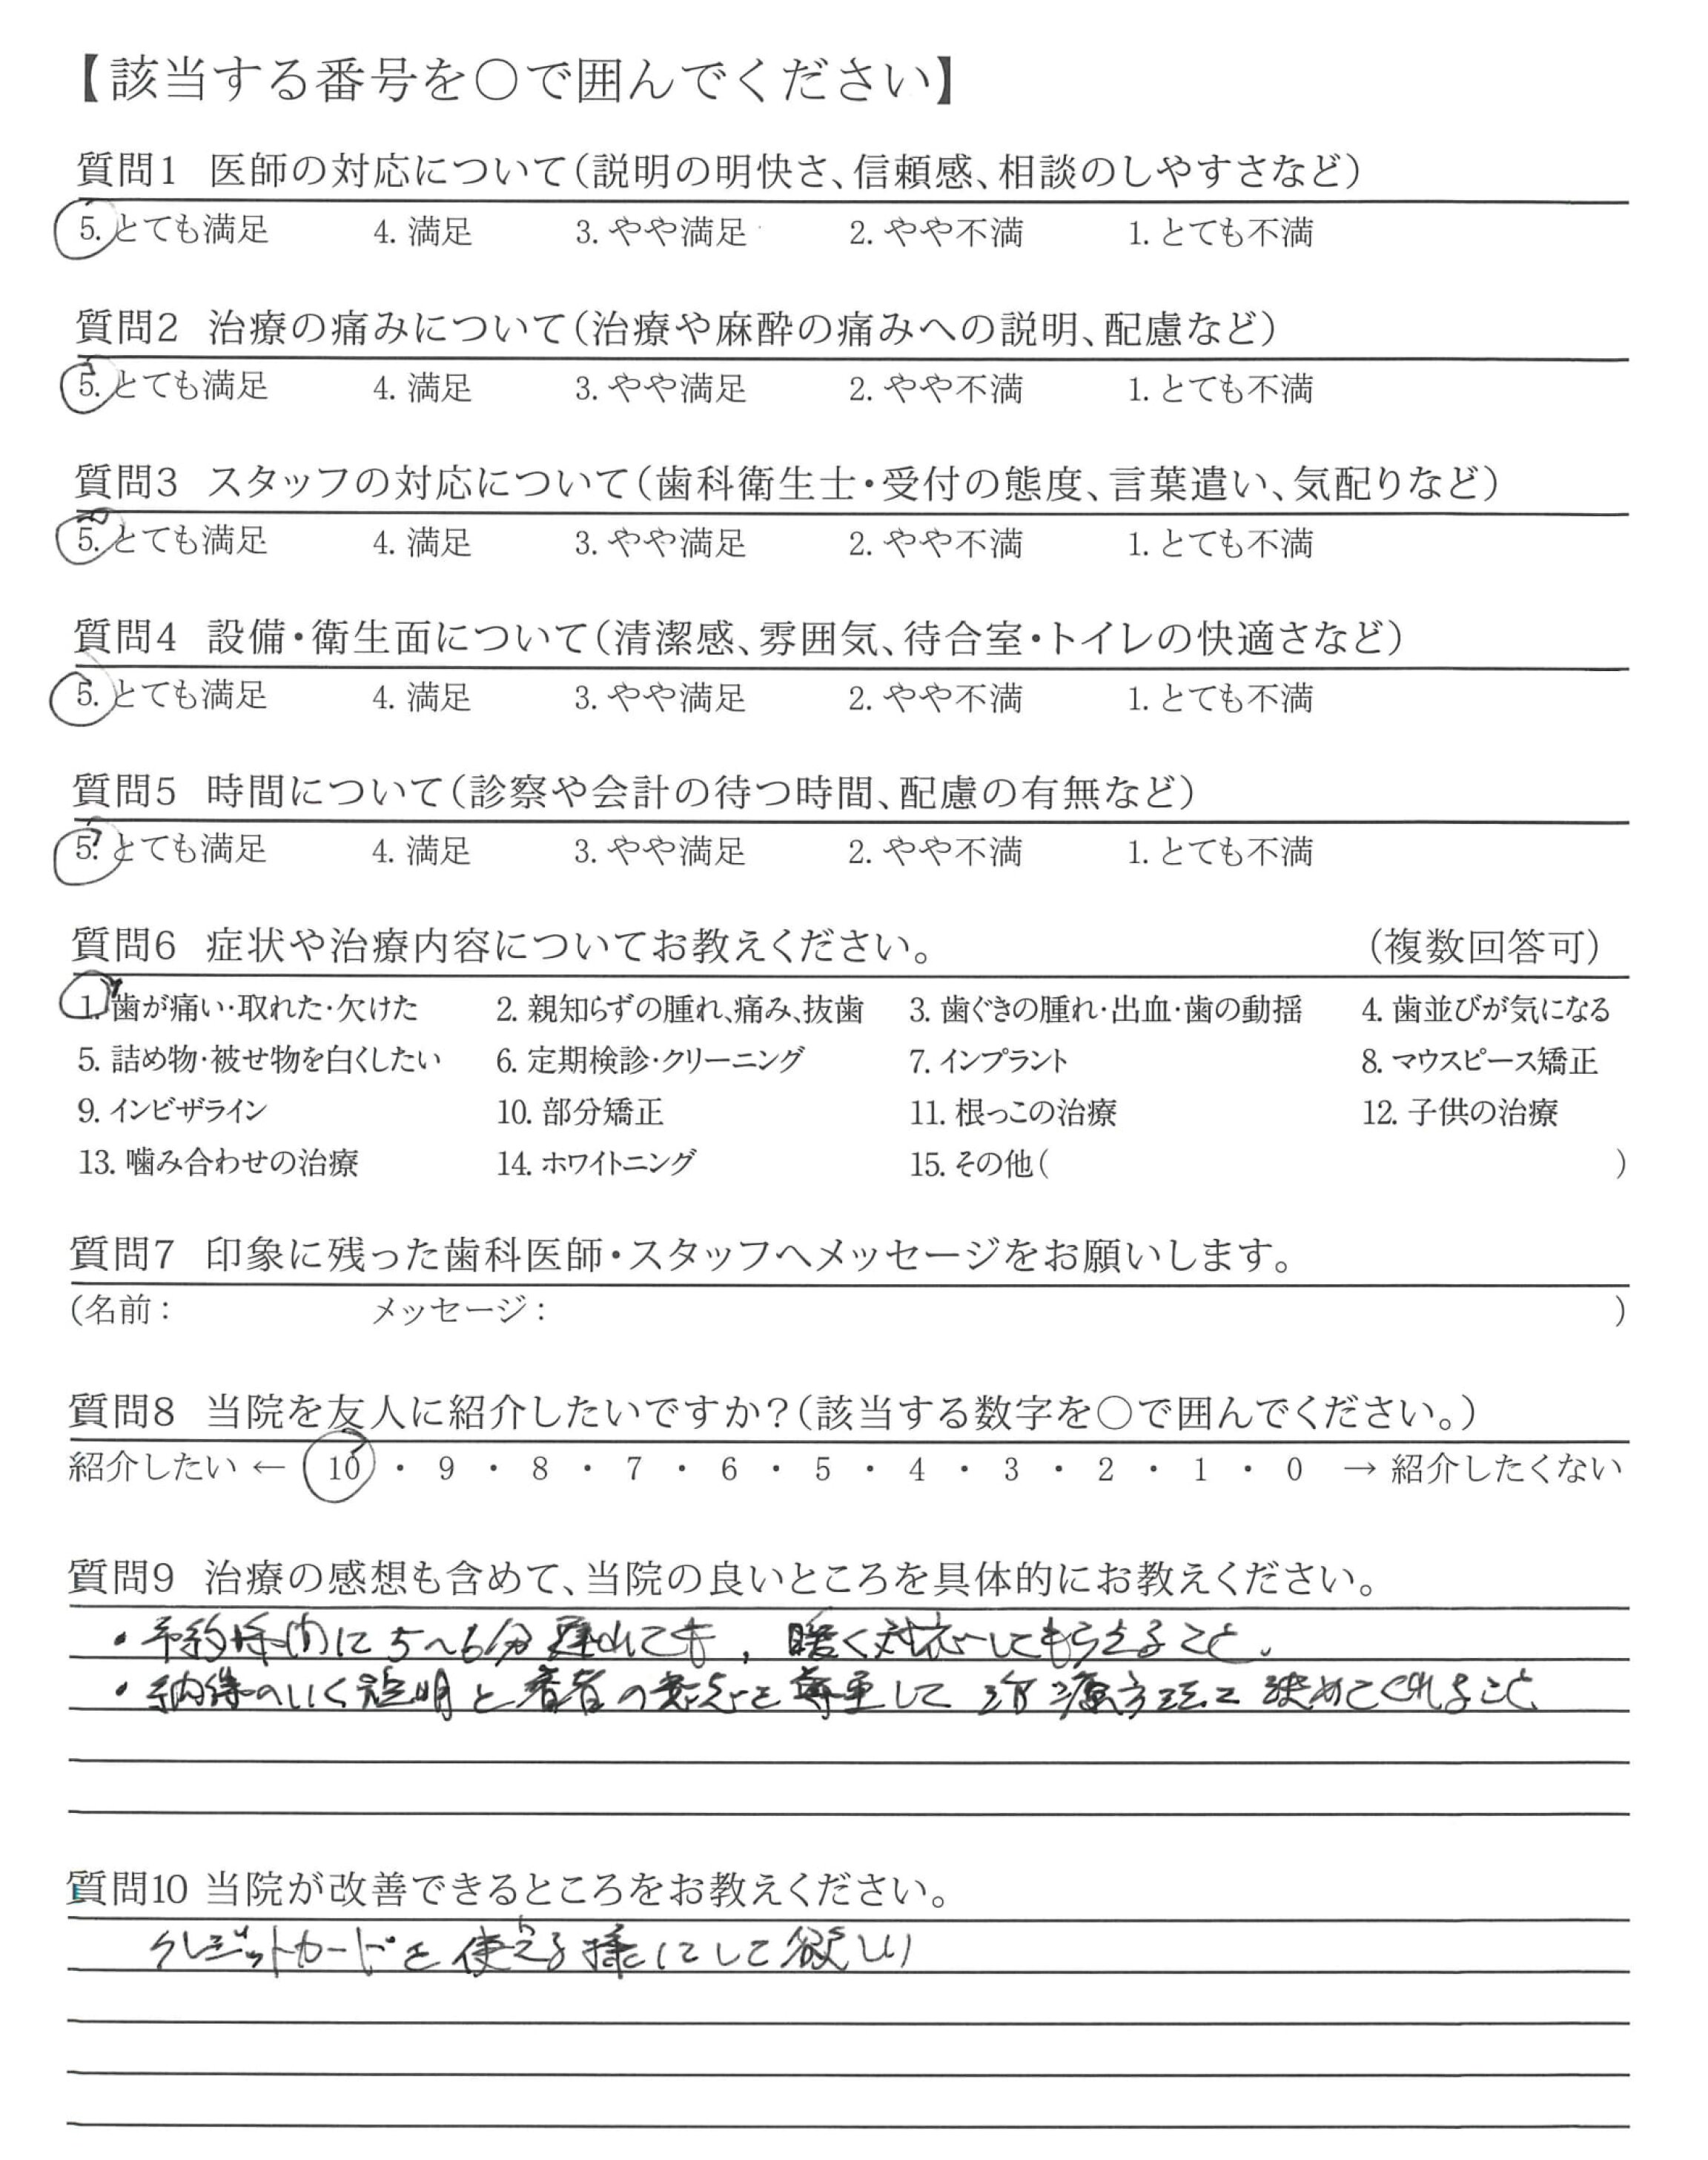 【該当する番号を○で囲んでください】
質問1 医師の対応について(説明の明快さ、信頼感、相談のしやすさなど)
5. とても満足 4. 満足 3. やや満足 2. やや不満 1. とても不満
質問2 治療の痛みについて(治療や麻酔の痛みへの説明、配慮など)
5. とても満足 4. 満足 3. やや満足 2. やや不満 1. とても不満
質問3 スタッフの対応について(歯科衛生士・受付の態度、言葉遣い、気配りなど)
5. とても満足 4. 満足 3. やや満足 2. やや不満 1. とても不満
質問4 設備・衛生面について(清潔感、雰囲気、待合室・トイレの快適さなど)
5. とても満足 4. 満足 3. やや満足 2. やや不満 1. とても不満
質問5 時間について(診察や会計の待つ時間、配慮の有無など)
5. とても満足 4. 満足 3. やや満足 2. やや不満 1. とても不満
質問6 症状や治療内容についてお教えください。 (複数回答可)
1. 歯が痛い・取れた・欠けた 2. 親知らずの腫れ、痛み、抜歯 3. 歯ぐきの腫れ・出血・歯の動揺 4. 歯並びが気になる
5. 詰め物・被せ物を白くしたい 6. 定期検診・クリーニング 7. インプラント 8. マウスピース矯正
9. インビザライン 10. 部分矯正 11. 根っこの治療 12. 子供の治療
13. 噛み合わせの治療 14. ホワイトニング 15. その他( )
質問7 印象に残った歯科医師・スタッフへメッセージをお願いします。
(名前: メッセージ: )
質問8 当院を友人に紹介したいですか?(該当する数字を○で囲んでください。)
紹介したい ← 10 ・ 9 ・ 8 ・ 7 ・ 6 ・ 5 ・ 4 ・ 3 ・ 2 ・ 1 ・ 0 → 紹介したくない
質問9 治療の感想も含めて、当院の良いところを具体的にお教えください。
・予約時間に5〜6分遅れても、暖く対応してもらえること。
・納得のいく説明と患者の意志を尊重して治療方法を決めてくれること
質問10 当院が改善できるところをお教えください。
クレジットカードを使える様にして欲しい